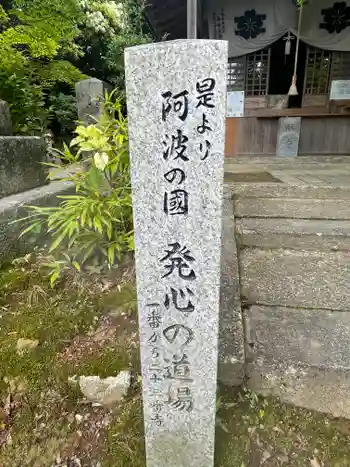 是より
阿波の国 発心の道場
一番から二十三番寺